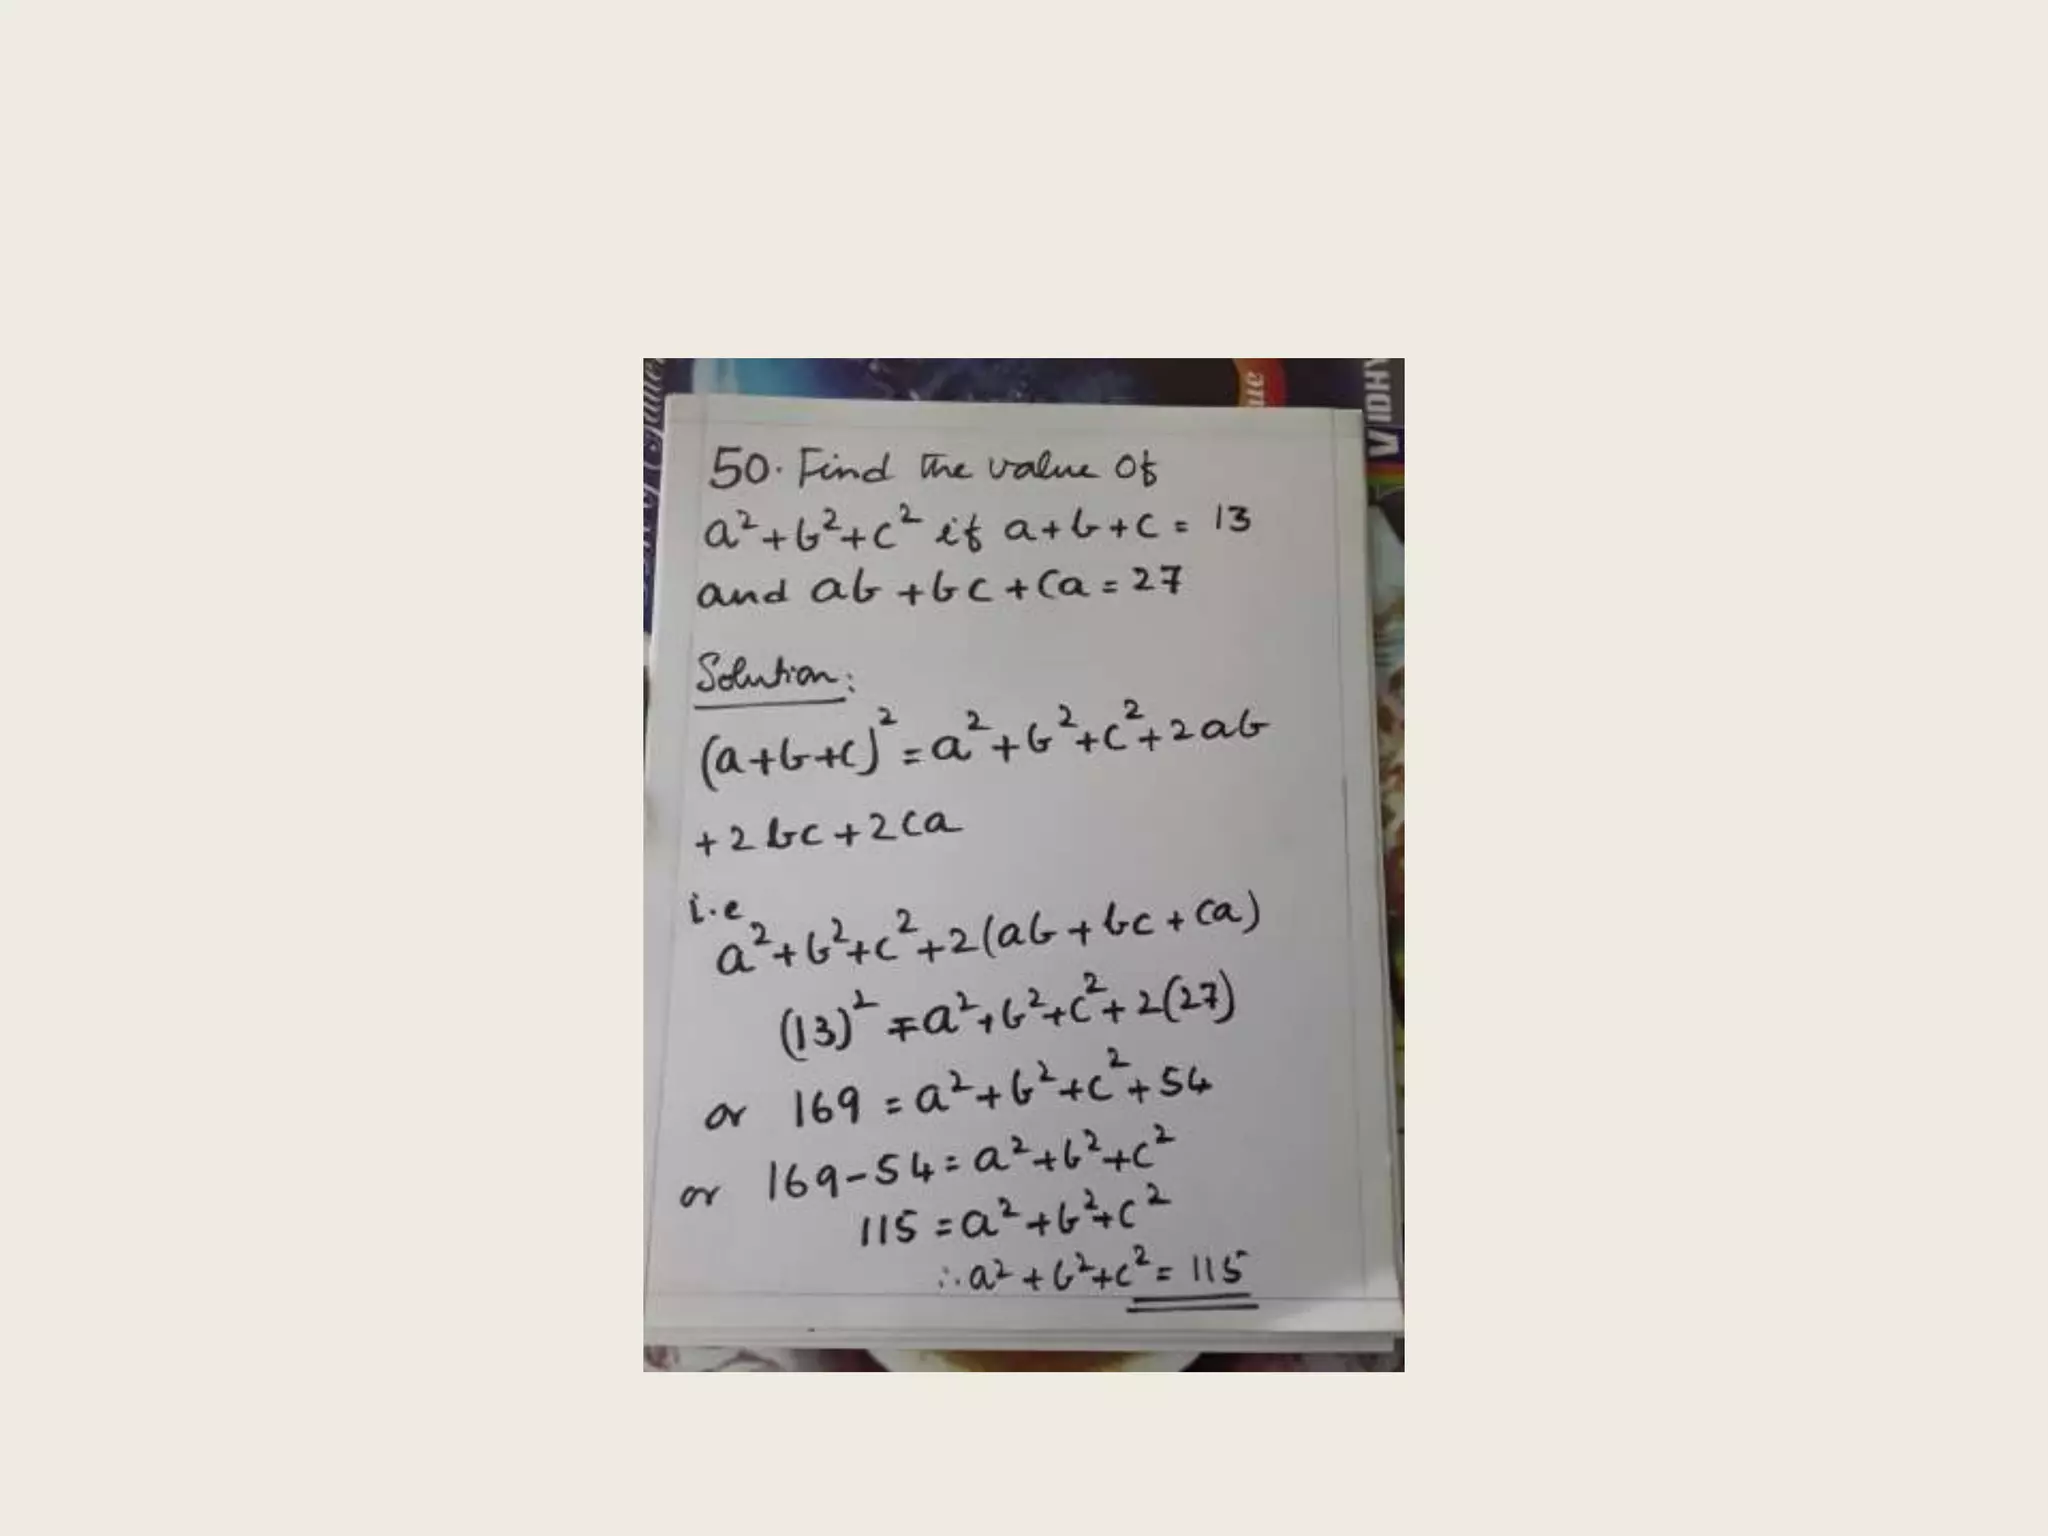 50. Find the value of
a²+b²+c² if a+b+c = 13
and ab+bc+ca = 27
Solution:
(a+b+c)² = a²+b²+c²+2ab
+2bc+2ca
i.e
a²+b²+c²+2(ab+bc+ca)
(13)² = a²+b²+c²+2(27)
or 169 = a²+b²+c²+54
or 169-54 = a²+b²+c²
115 = a²+b²+c²
∴ a²+b²+c² = 115
VIDHY
ue